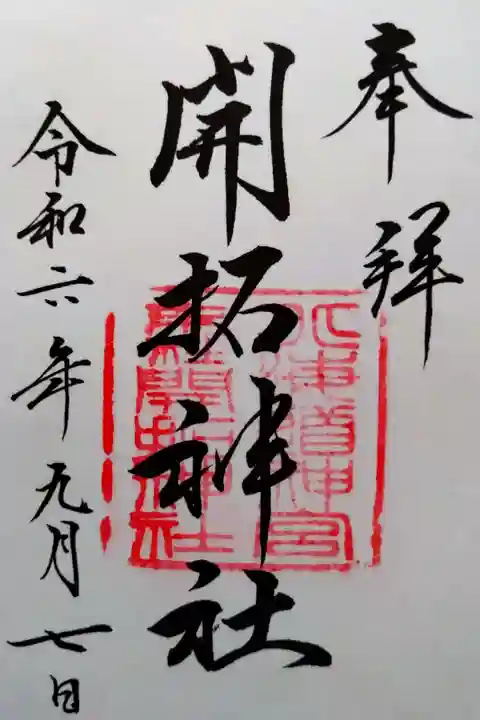 奉拝
開拓神社
令和六年九月七日
北海道神宮
末社開拓神社